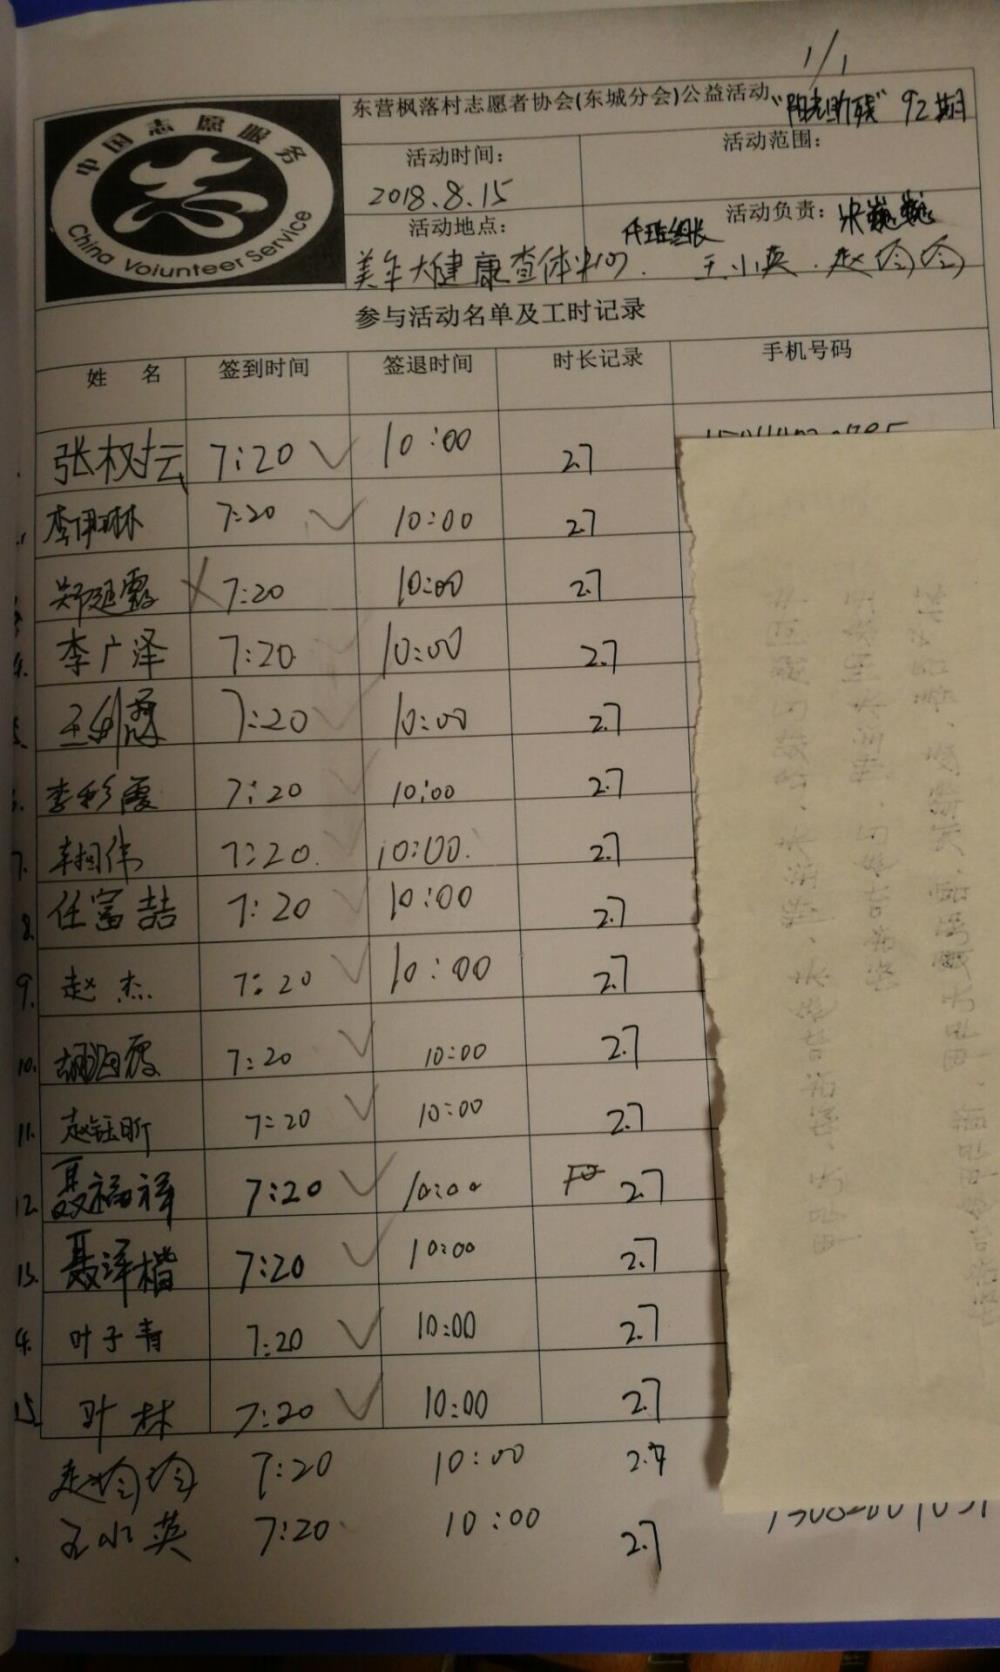 1/1
东营枫落村志愿者协会(东城分会)公益活动 "阳光助残" 92期
中国志愿服务
China Volunteer Service
活动时间:
2018.8.15
活动范围:
活动地点:
美年大健康查体中心.
活动负责: 宋巍巍
代班组长
王小英. 赵伶伶
参与活动名单及工时记录
姓 名 签到时间 签退时间 时长记录 手机号码
张权坛 7:20 ✓ 10:00 2.7
李伊琳 7:20 ✓ 10:00 2.7
郑延霞 X 7:20 10:00 2.7
4. 李广泽 7:20 ✓ 10:00 2.7
5. 7:20 ✓ 10:00 2.7
6. 李彩霞 7:20 ✓ 10:00 2.7
7. 韩相伟 7:20. ✓ 10:00. 2.7
8. 任富喆 7:20 ✓ 10:00 2.7
9. 赵杰 7:20 ✓ 10:00 2.7
10. 胡海霞 7:20 ✓ 10:00 2.7
11. 赵钰昕 7:20 ✓ 10:00 2.7
12. 聂福祥 7:20 ✓ 10:00 2.7
13. 聂泽楷 7:20 ✓ 10:00 2.7
4. 叶子青 7:20 ✓ 10:00 2.7
15. 叶林 7:20 ✓ 10:00 2.7
赵伶伶 7:20 10:00 2.7
王小英 7:20 10:00 2.7